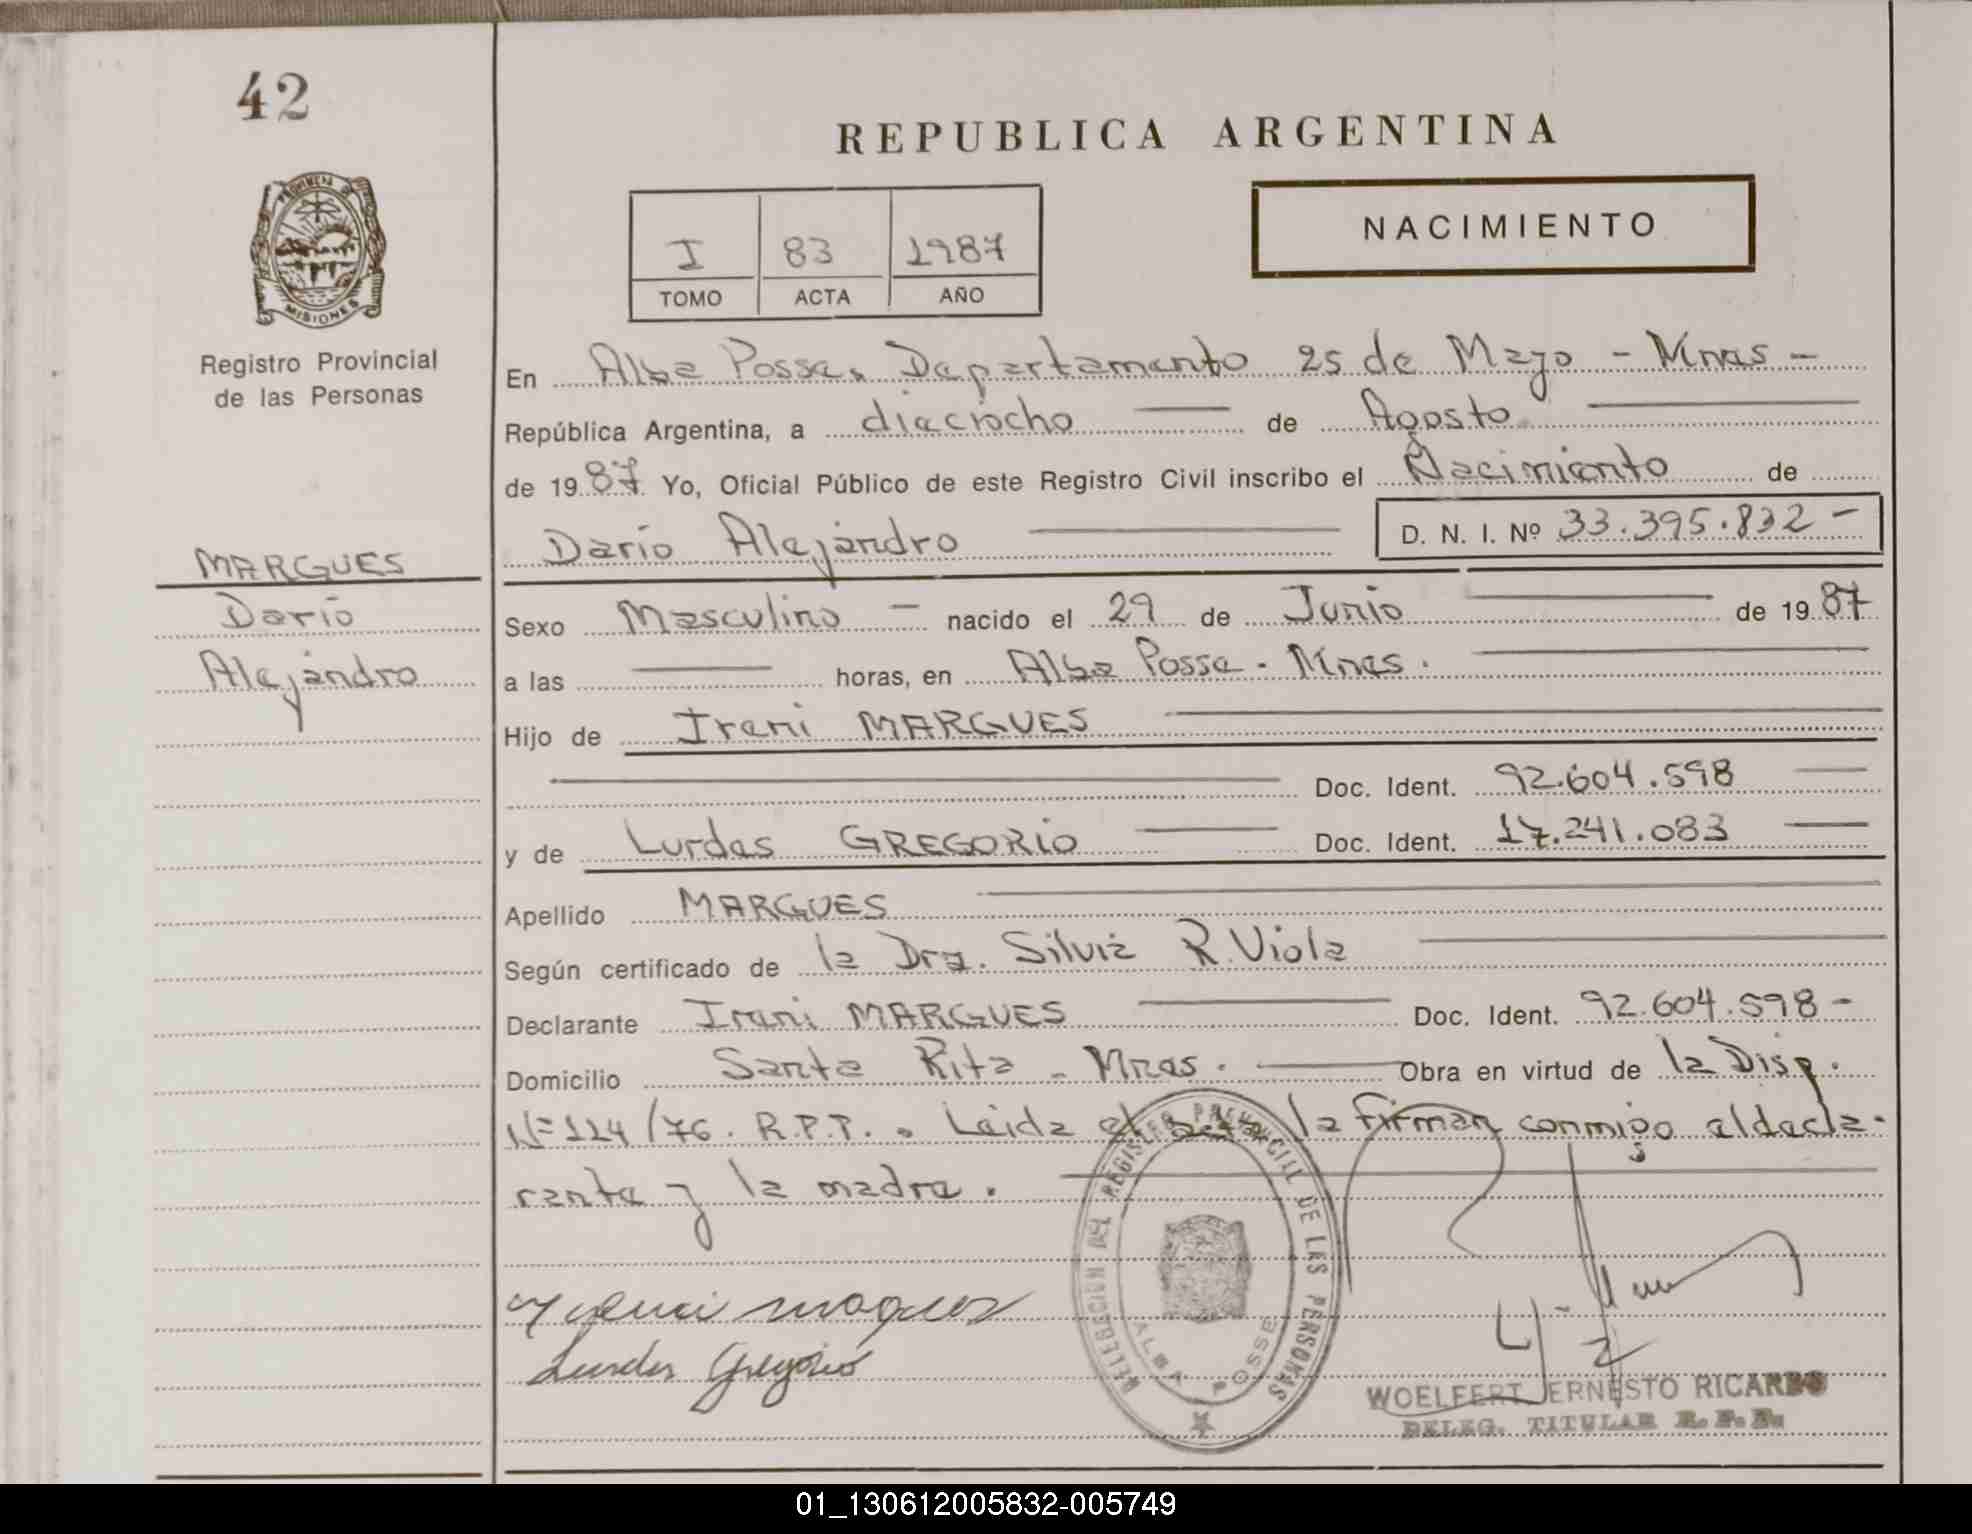 42
REPUBLICA ARGENTINA
NACIMIENTO
I 83 1987
TOMO ACTA AÑO
PROVINCIA DE
MISIONES
Registro Provincial
de las Personas
MARGUES
Darío
Alejandro
En Alba Posse, Departamento 25 de Mayo - Mnes -
República Argentina, a dieciocho de Agosto
de 1987 Yo, Oficial Público de este Registro Civil inscribo el Nacimiento de
Darío Alejandro D. N. I. Nº 33.395.832 -
Sexo Masculino - nacido el 29 de Junio de 1987
a las horas, en Alba Posse - Mnes.
Hijo de Ireni MARGUES
Doc. Ident. 92.604.598
y de Lurdes GREGORIO Doc. Ident. 17.241.083
Apellido MARGUES
Según certificado de la Dra. Silvia R. Viola
Declarante Ireni MARGUES Doc. Ident. 92.604.598 -
Domicilio Santa Rita - Mnes. Obra en virtud de la Disp.
Nº 114/76. R.P.P. . Leida el acta, la firman conmigo el decla-
rante y la madre.
DELEGACION DEL REGISTRO PROVINCIAL DE LAS PERSONAS
ALBA POSSE
Lurdes Gregorio
WOELFERT ERNESTO RICARDO
DELEG. TITULAR R. P. P.
01_130612005832-005749